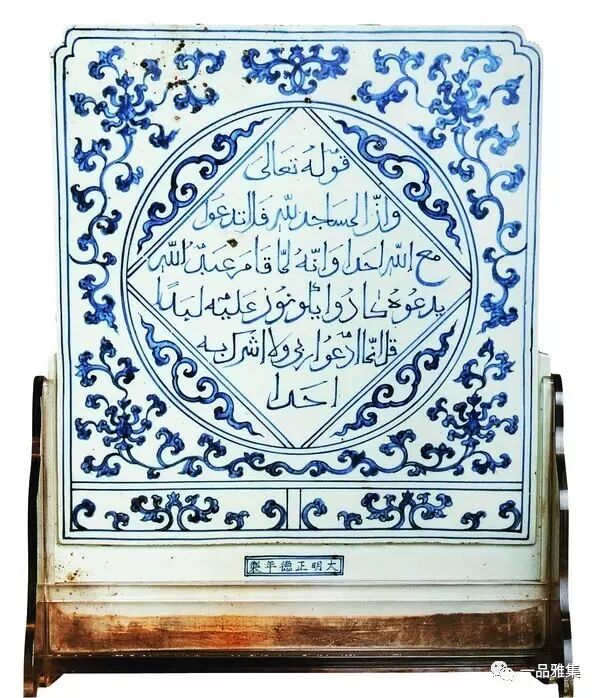 قوله تعالى
وان المساجد لله فلا تدعوا
مع الله احدا وانه لما قام عبد الله
يدعوه كادوا يكونون عليه لبدا
قل انما ادعوا ربي ولا اشرك به
احدا
大明正德年製
一品雅集